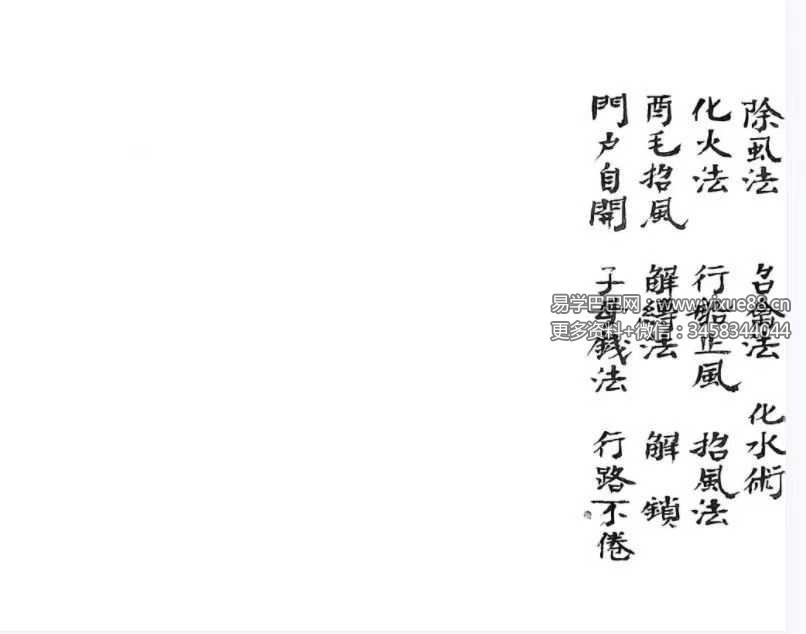 除虱法 召禽法 化水術
化火法 行船止風 招風法
酉毛招風 解縛法 解鎖
門户自開 子母錢法 行路不倦
易学巴巴网：www.yixue88.cn
更多资料+微信：3458344044